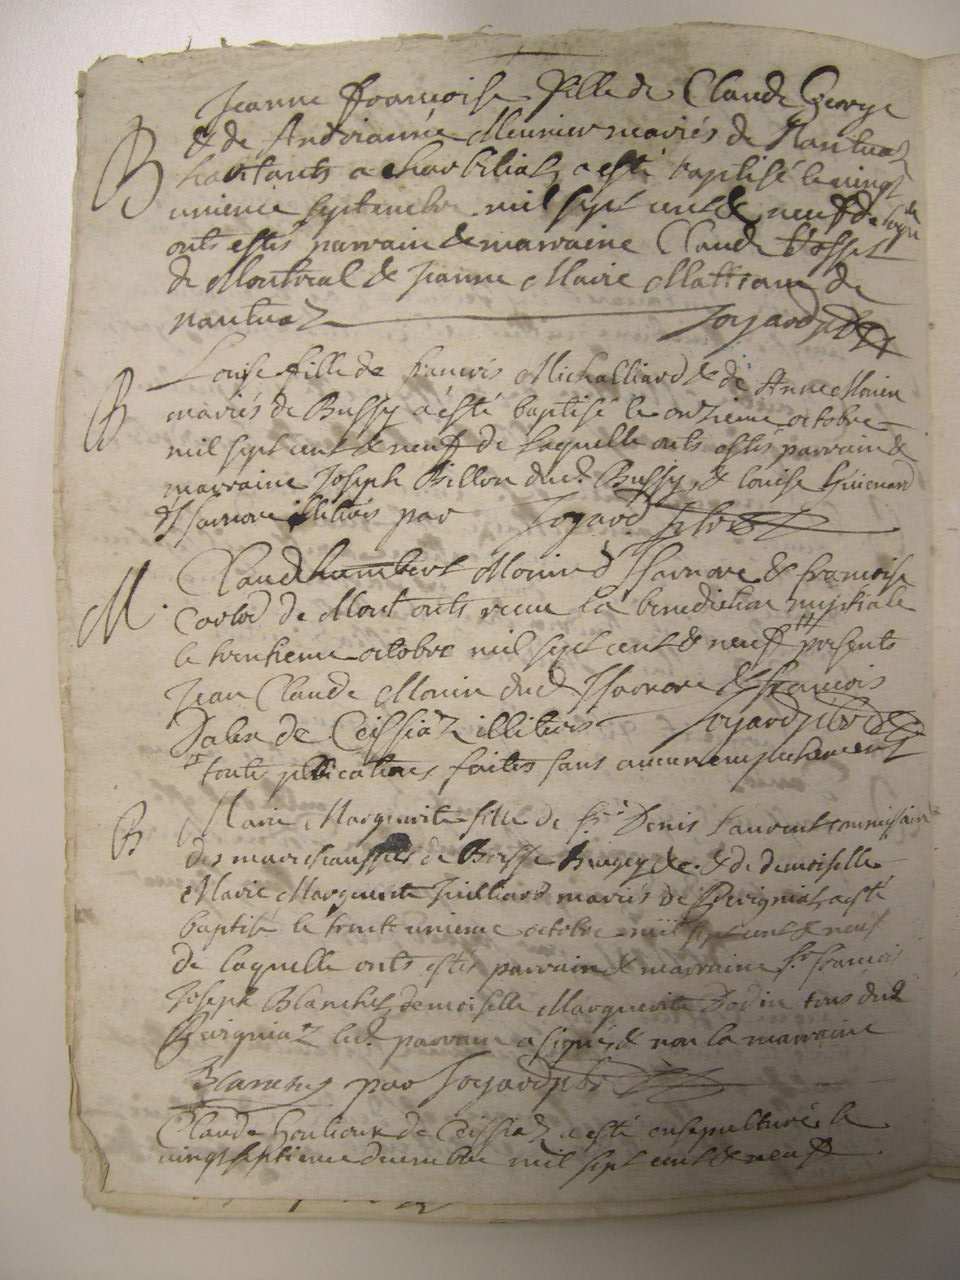 Jeanne francoise fille de Claude George
& de Andrianne Meunier mariés de Nantuaz
B habitants a Charbilliaz a esté baptisé le vingt
unieme septembre mil sept cent & neuf de laquelle
onts estés parrain & marraine Claude
de Montreal & Jeanne Marie de
nantuaz Joyard
Louise fille de francois Michalliard & de Anne Monin
B mariés de Bussy a esté baptisé le onzieme octobre
mil sept cent & neuf de laquelle onts estés parrain &
marraine Joseph Billon dud. Bussy & Louise
d'Isarnore illitirés par Joyard
Claude humbert Monin d Isarnore & francoise
M. de Mont onts receu la benediction nuptiale
le trentieme octobre mil sept cent & neuf presents
Jean Claude Monin dud Isarnore & francois
de Ceissiaz illitirés Joyard
toute publications faites sans aucun empechement
B Marie Marguerite fille de sr. Denis Laurent commissaire
des marechaussées de Bresse Bugey & & de demoiselle
Marie Marguerite Juilliard mariés de Perigniaz a esté
baptisé le trente unieme octobre mil sept cent & neuf
de laquelle onts estés parrain & marraine sr. francois
Joseph Blanchet demoiselle Marguerite Bodin tous dud
Perigniaz led. parrain a signé & non la marraine
Blanchet par Joyard
Claude de Ceissiaz a esté ensepulturé le
vingt septieme decembre mil sept cent & neuf